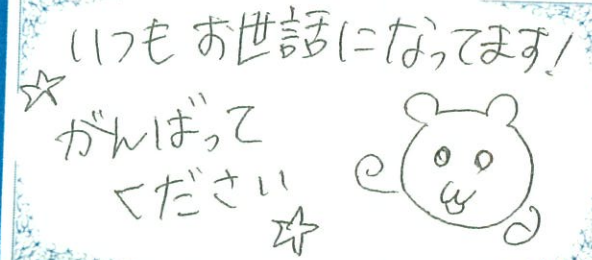 いつもお世話になってます!
がんばって
ください